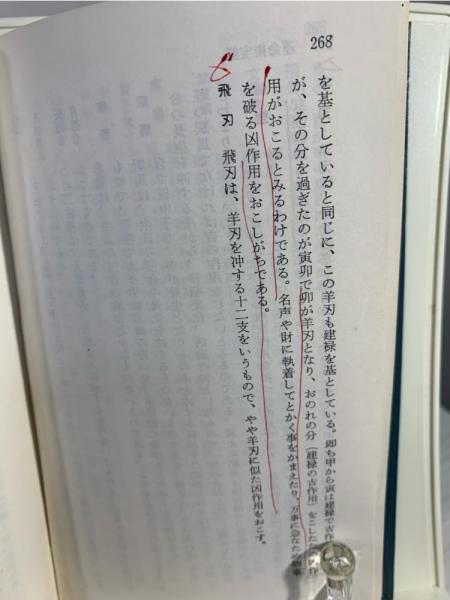 268
を基としていると同じに、この羊刃も建禄を基としている。即ち甲から寅は建禄で吉作
が、その分を過ぎたのが寅卯で卯が羊刃となり、おのれの分(建禄の吉作用)をこした
用がおこるとみるわけである。名声や財に執着してとかく事をかまえたり、万事に急なため物事
を破る凶作用をおこしがちである。
飛刃 飛刃は、羊刃を冲する十二支をいうもので、やや羊刃に似た凶作用をおこす。